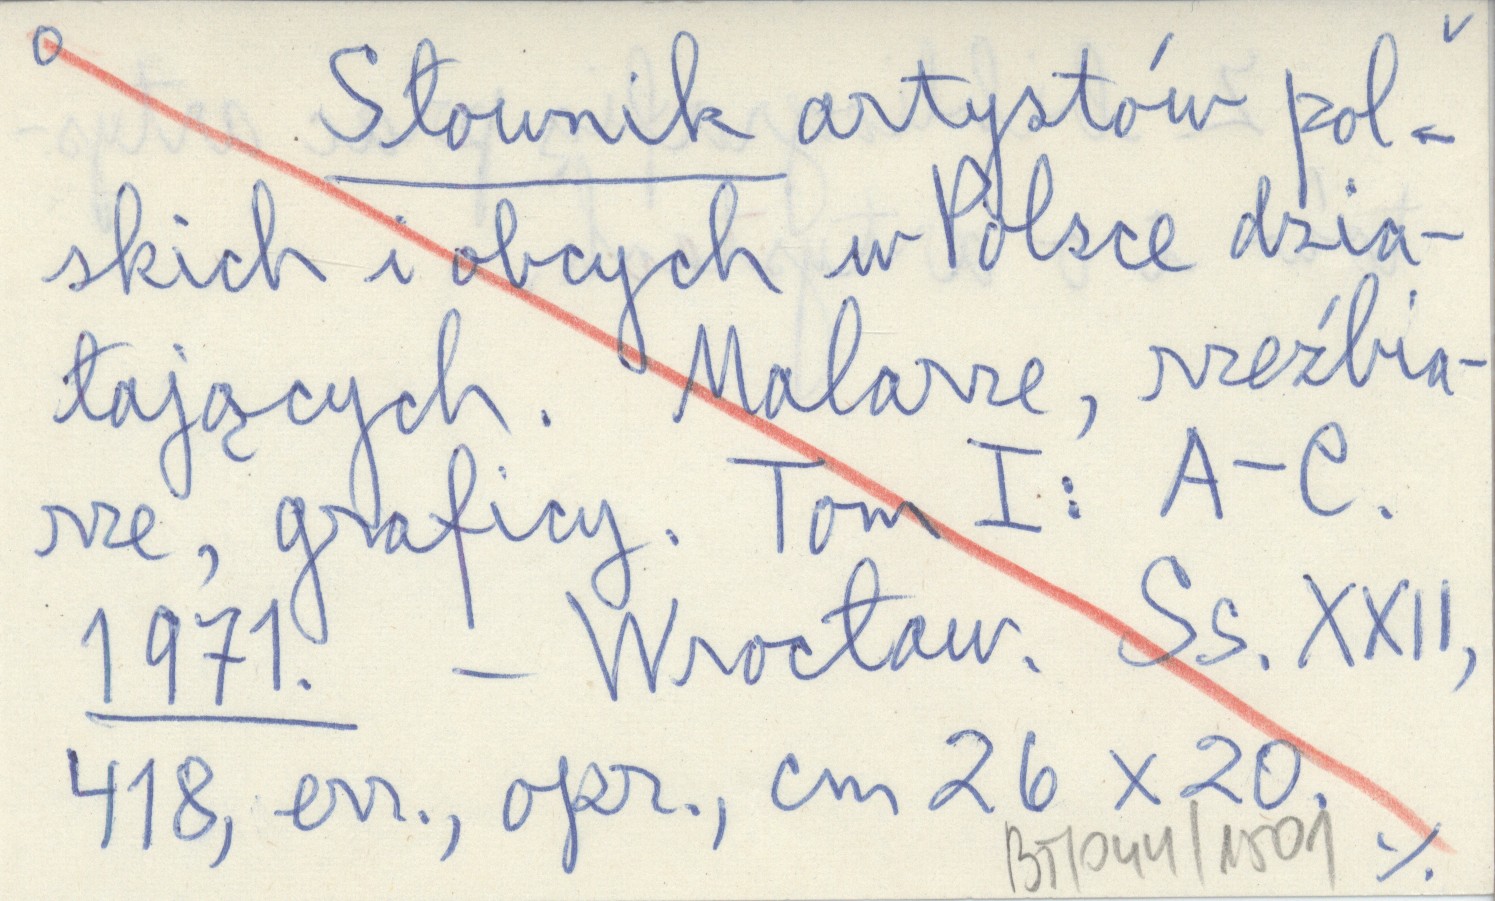 Słownik artystów pol-
skich i obcych w Polsce dzia-
łających. Malarze, rzeźbia-
rze, graficy. Tom I: A-C.
1971. - Wrocław. Ss. XXII,
418, err., opr., cm 26 x 20.
BT/044/1501
./.